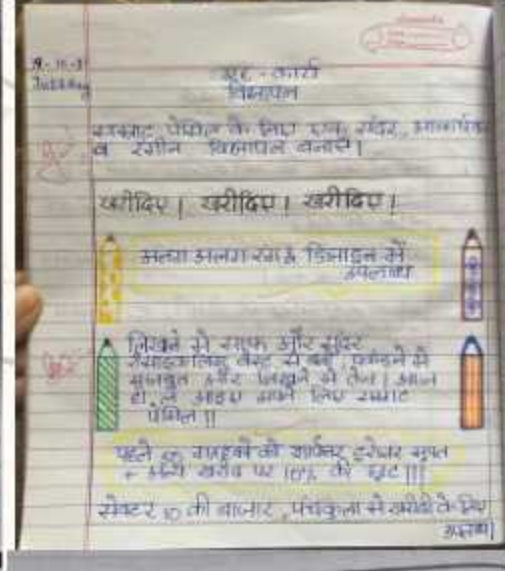 Tuesday
गृह - कार्य
विज्ञापन
सम्राट पेंसिल के लिए एक सुंदर, आकर्षक
व रंगीन विज्ञापन बनाएँ।
खरीदिए। खरीदिए। खरीदिए।
अलग अलग रंग & डिजाइन में
उपलब्ध
लिखने में साफ और सुंदर
वेस्ट से बनी, पकड़ने में
मजबूत और लिखने में तेज। आज
ही ले आइए अपने लिए सम्राट
पेंसिल !!
पहले ग्राहकों को शार्पनर इरेजर मुफ्त
+ खरीद पर 10% की छूट !!!
सेक्टर 10 की बाजार, पंचकुला में खरीदी के लिए
उपलब्ध।